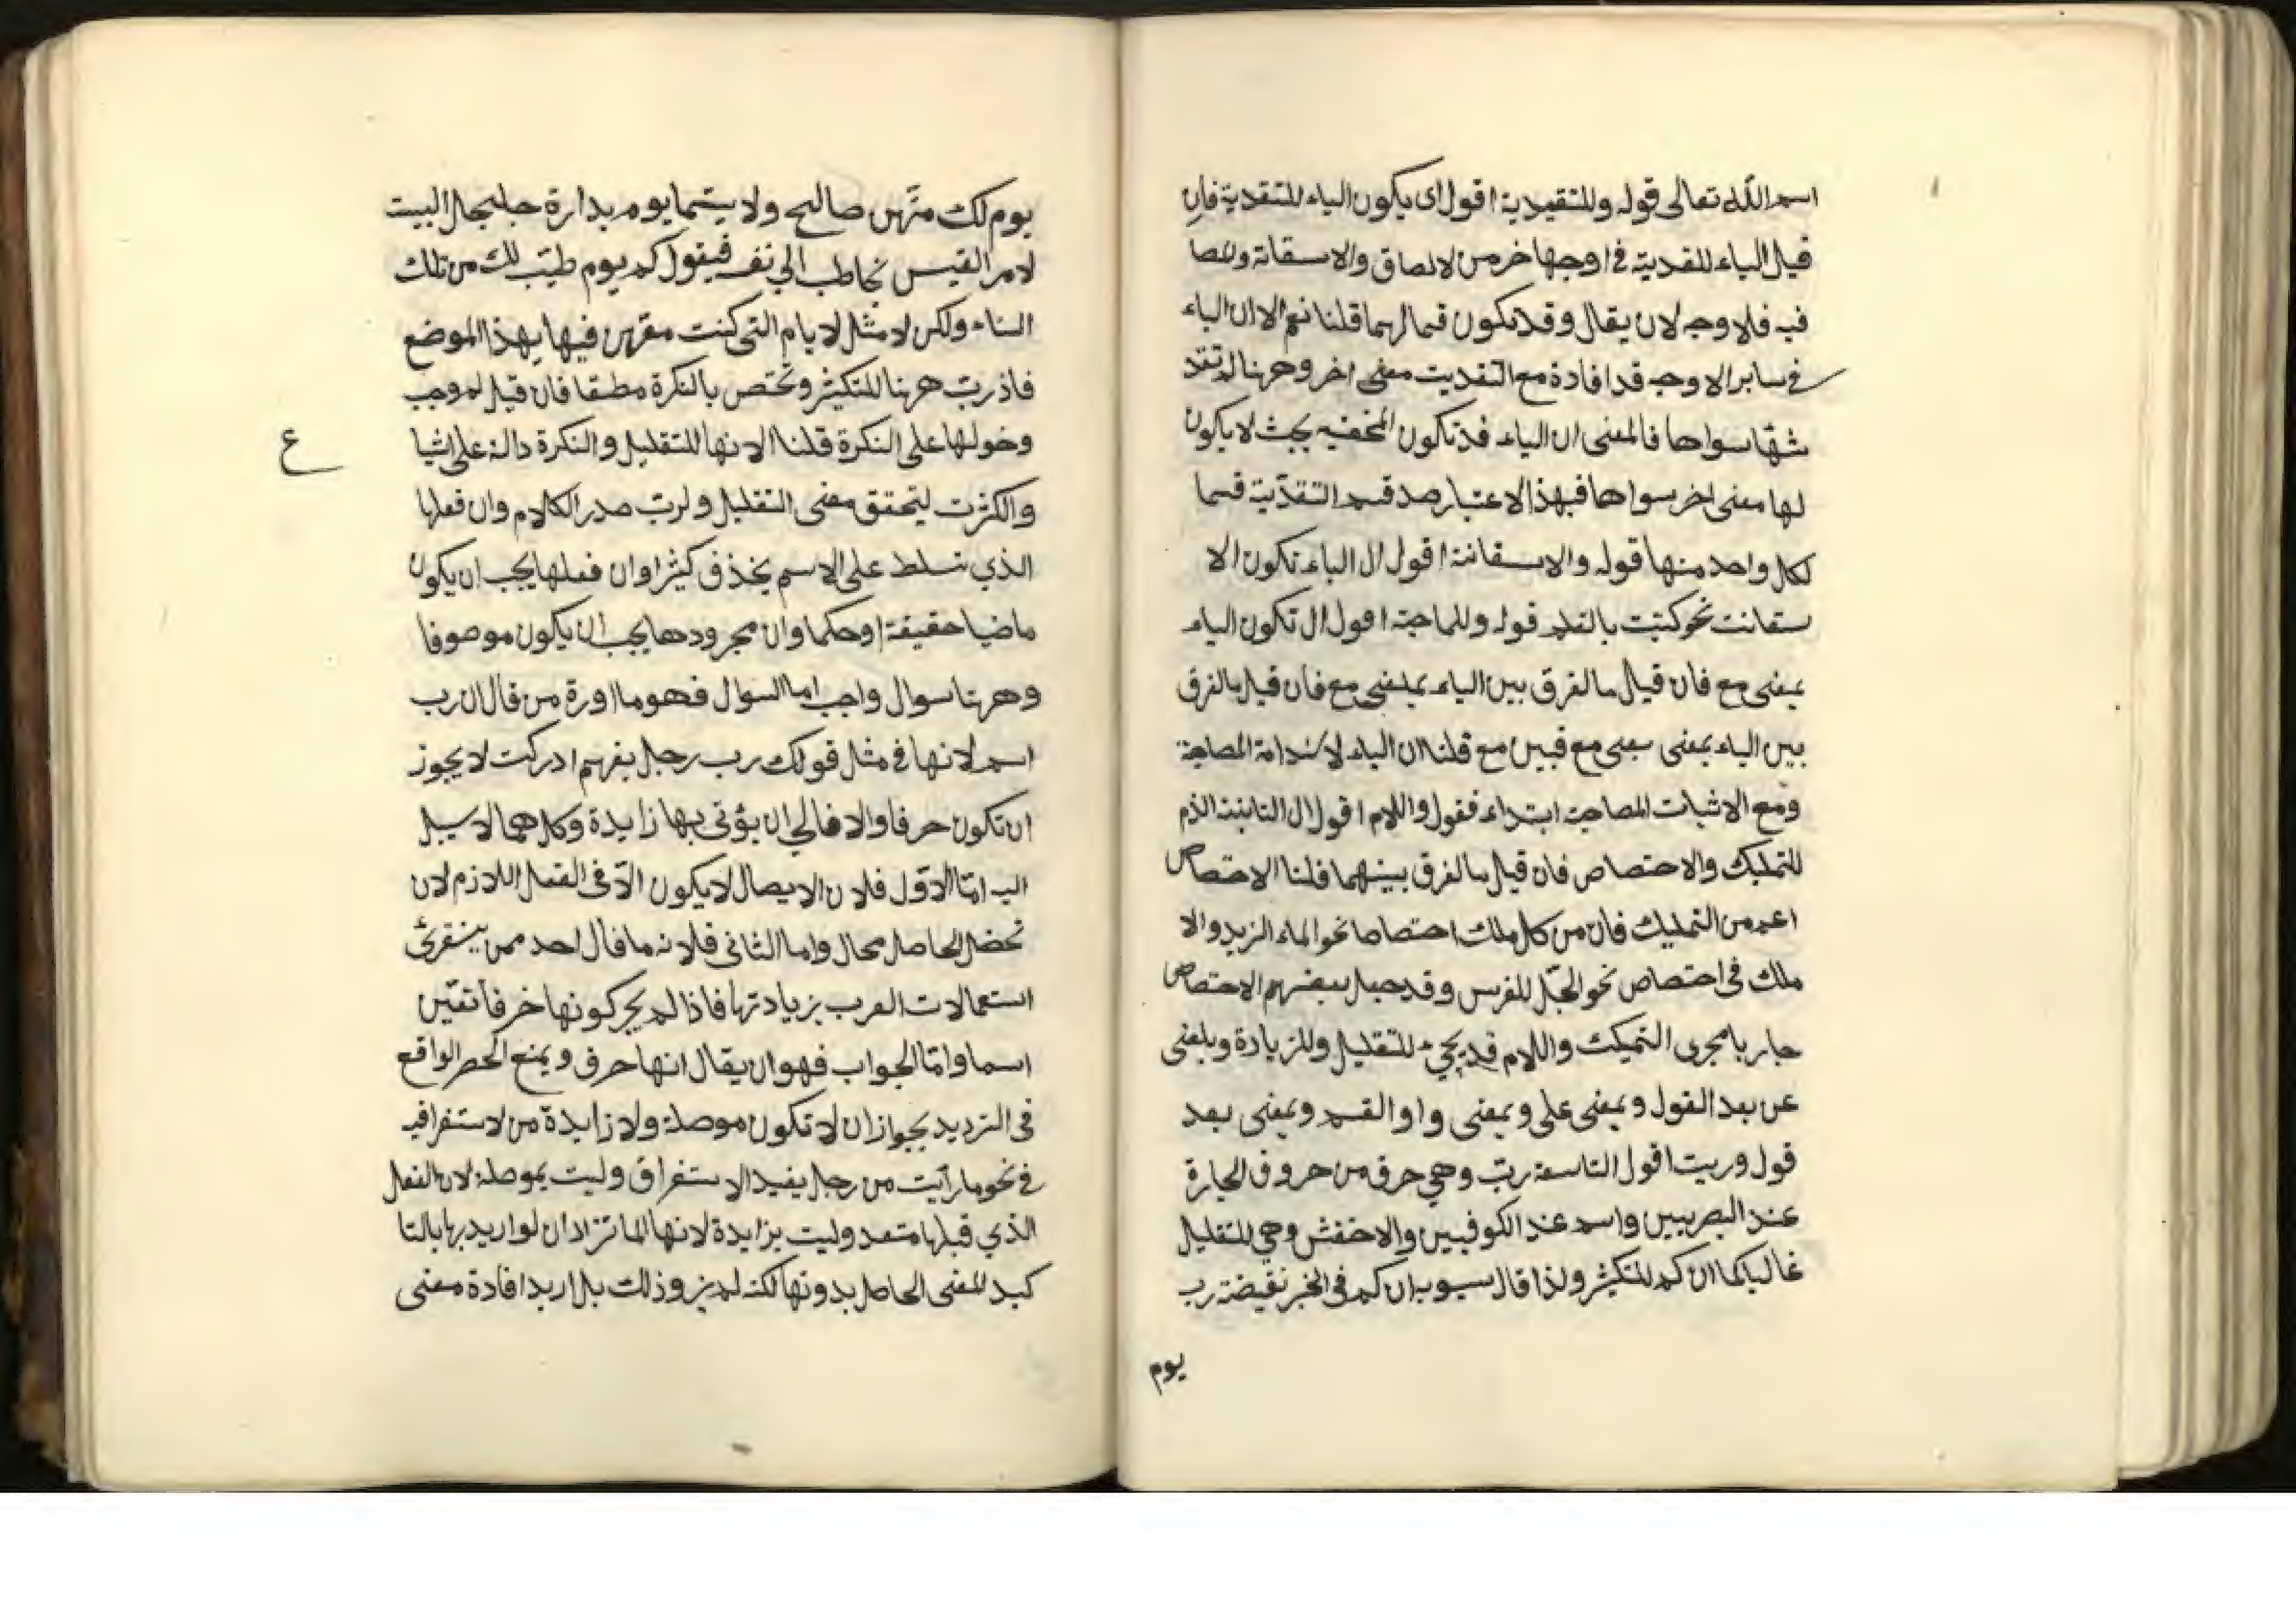 اسم الله تعالى قوله وللتقيدية اقول اى يكون الباء للتقدية فان
قيل الباء للقدية في اوجها خر من لالصاق والاسقانة وللصا
فيه فلا وجه لان يقال وقد تكون قيل قلنا نعم الا ان الباء
في ساير الاوجه قد افادة مع التقديت معنى اخر وهرنا لم تقد
شها سواها فالمعنى ان الباء قد تكون بحث لا يكون
لها معنى اخر سواها فبهذا الاعتبار صد قسم التقدية قسما
لكل واحد منها قوله والاسقانة اقول ال الباء تكون الا
سقانت نحو كتبت بالقلم قوله وللماجة اقول ال تكون الباء
بمعنى مع فان قيل ما لفرق بين الباء بمعنى مع فان قيل ما لفرق
بين الباء بمعنى مع قبين مع قلنا ان الباء لاستدامة المصاجة
ومع الاثبات المصاجة ابتداء فقول واللام اقول ال الثابنة الذم
للتمليك والاحتصاص فان قيل ما لفرق بينهما قلنا الاحتصاص
اعم من التمليك فان من كل ملك احتصاصا نحو الماء الزيد والا
ملك فى احتصاص نحو الجل للفرس وقد جيل ببعضهم الاحتصاص
جاريا مجرى التميكث واللام قد يجيء للتقليل وللزيادة وبلعنى
عن بعد القول وبمعنى على وبمعنى واو القسم وبمعنى بعد
قول وربت اقول التاسعة ربّ وهي حرف من حروف الجارة
عند البصريين واسم عند الكوفيين والاخفش وهي للتقليل
غالبا كما ان كم للتكثير ولذا قال سيبويه ان كم فى الخبر نقيضة رب
يوم
يوم لك منهن صالح ولا سيما يوم بدارة جلجل البيت
لامر القيس يخاطب الى نف فيقول كم يوم طيّب لك من تلك
النساء ولكن لا مثل لايام التى كنت مقرس فيها بهذا الموضع
فاذ ربّ هرنا للتكيثر وتختص بالنكرة مطقا فان قيل لم وجب
وخولها على النكرة قلنا الا نها للتقليل والنكرة دالة على اشيا
ع
والكثرت ليتحقق معنى التقليل ولربّ صدر الكلام وان فعلها
الذي تسلط على الاسم يحذف كيثرا وان فعلها يجب ان يكون
ماضيا حقيقة او حكما وان مجرودها يجب ان يكون موصوفا
وهرنا سوال واجب اما السوال فهو ما اورة من قال ان رب
اسم لانها في مثل قولك رب رجل يفهم ادركت لا يجوز
ان تكون حرفا والا فالى ان يؤتى بها زايدة وكل هما لا سيل
اليه امّا الاوّل فلان الايصال لا يكون الاّ فى الفعل اللازم لان
تحضل الحاصل محال واما الثانى فلانه ما قال احد ممن يسنقرئ
استعمالات العرب بزيادتها فاذا لم يجر كونها خرفا تقيّن
اسما وامّا الجواب فهو ان يقال انها حرف ويمنع الحصر الواقع
فى الترديد بجوازان لا تكون موصلة ولا زايدة من لاستغرافيه
في نحو ما رأيت من رجل يفيد الاستغراق وليت بموصلة لان الفعل
الذي قبلها متعد وليت بزايدة لانها انما تزاد ان لو اريد بها بالتا
كيد للمعنى الحاصل بدونها لكنه لم يز وذلك بل اريد افادة معنى